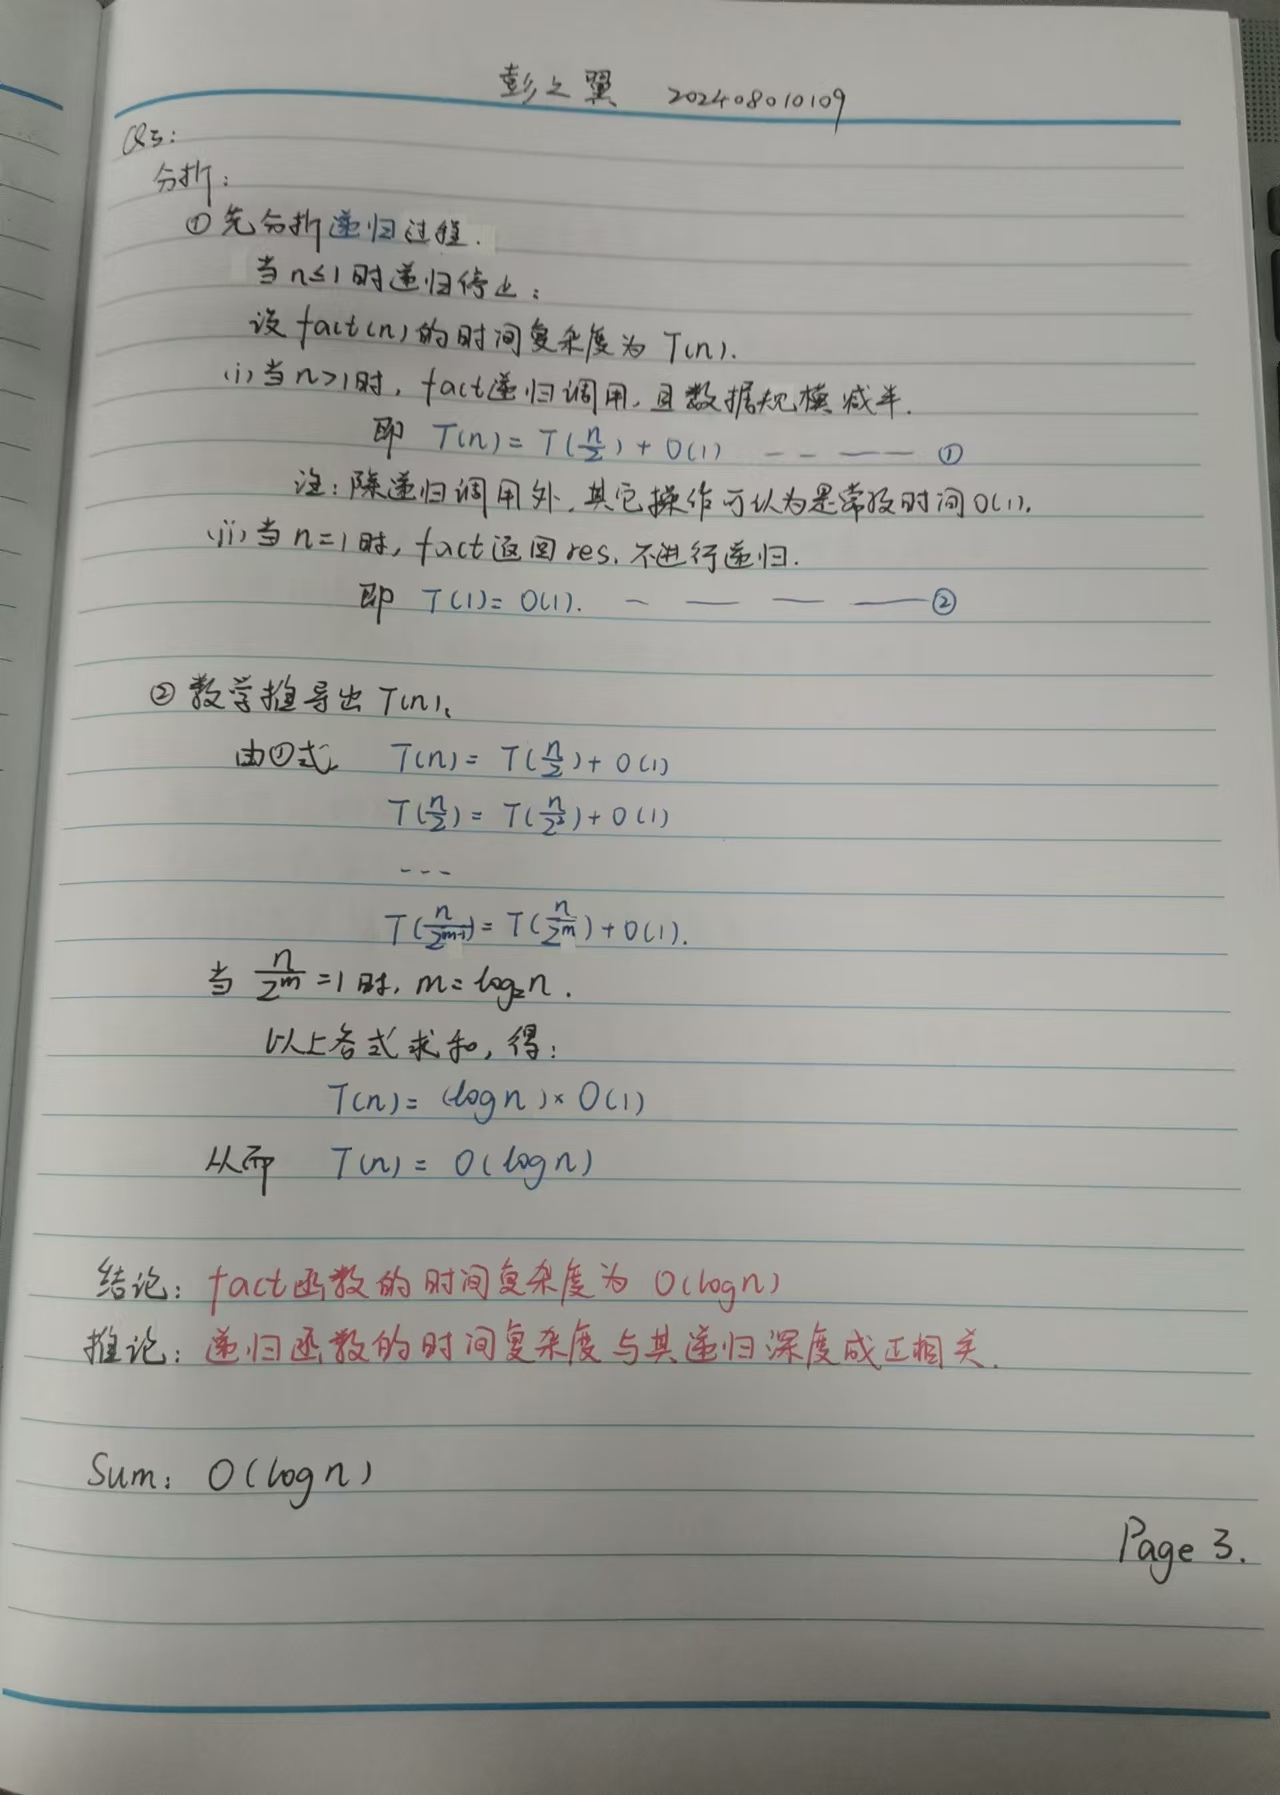 彭之翼 202408010109
Q3:
分析:
① 先分析递归过程.
当n≤1时递归停止;
设fact(n)的时间复杂度为T(n).
(i) 当n>1时, fact递归调用, 且数据规模减半.
即 T(n) = T(n/2) + O(1) ---- ①
注: 除递归调用外, 其它操作可认为是常数时间O(1).
(ii) 当n=1时, fact返回res, 不进行递归.
即 T(1) = O(1). ---- ②
② 数学推导出T(n).
由①式, T(n) = T(n/2) + O(1)
T(n/2) = T(n/2²) + O(1)
---
T(n/2^(m-1)) = T(n/2^m) + O(1).
当 n/2^m = 1时, m = log₂n.
以上各式求和, 得:
T(n) = (logn) × O(1)
从而 T(n) = O(logn)
结论: fact函数的时间复杂度为 O(logn)
推论: 递归函数的时间复杂度与其递归深度成正相关.
Sum: O(logn)
Page 3.